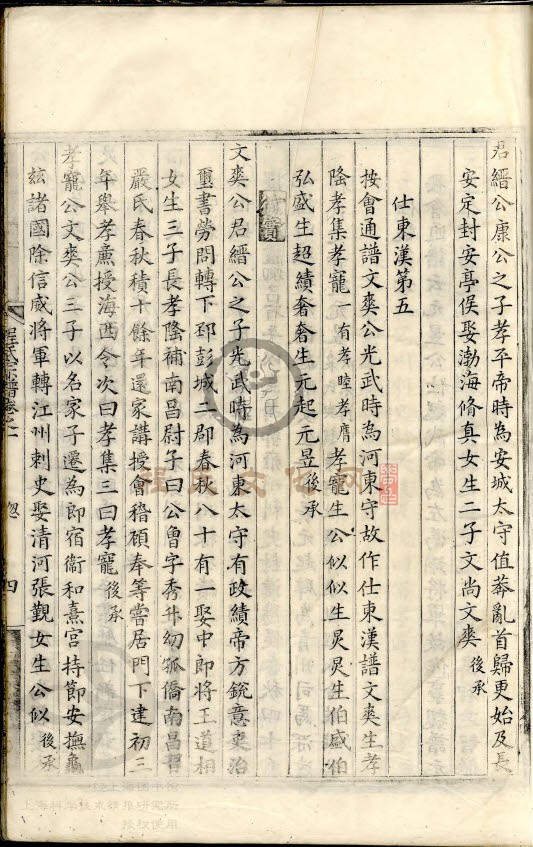 君縉公康公之子孝平帝時為安城太守值莽亂首歸更始及長
安定封安亭侯娶渤海脩真女生二子文尚文奭後承
仕東漢第五
按會通譜文奭公光武時為河東守故作仕東漢譜文奭生孝
隆孝集孝寵一有孝睦孝膺孝寵生公似似生炅炅生伯盛伯
弘盛生超績奢奢生元起元昱後承
文奭公君縉公之子光武時為河東太守有政績帝方銳意吏治
璽書勞問轉下邳彭城二郡春秋八十有一娶中郎將王道相
女生三子長孝隆補南昌尉子曰公魯字秀升幼孤僑南昌習
嚴氏春秋積十餘年還家講授會稽碩奉等嘗居門下建初三
年舉孝廉授海西令次曰孝集三曰孝寵後承
孝寵公文奭公三子以名家子遷為郎宿衛和熹宮持節安撫龜
玆諸國除信威將軍轉江州刺史娶清河張觀女生公似後承
程氏宗譜卷之一
四
程氏文化网